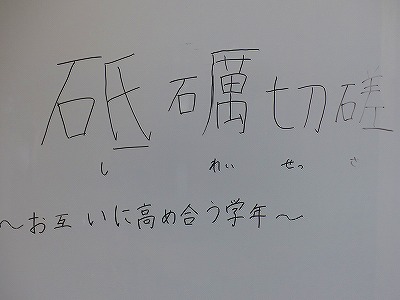 砥礪切磋
しれいせっさ
～お互いに高め合う学年～